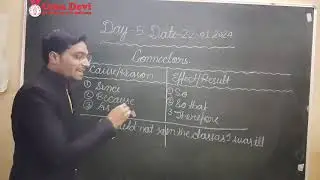 Devi
Day-5 Date-22.01.2024
Connectors
Cause/Reason Effect/Result
① Since ① So
② Because ② So that
③ As 3 Therefore
not join the class as I was ill